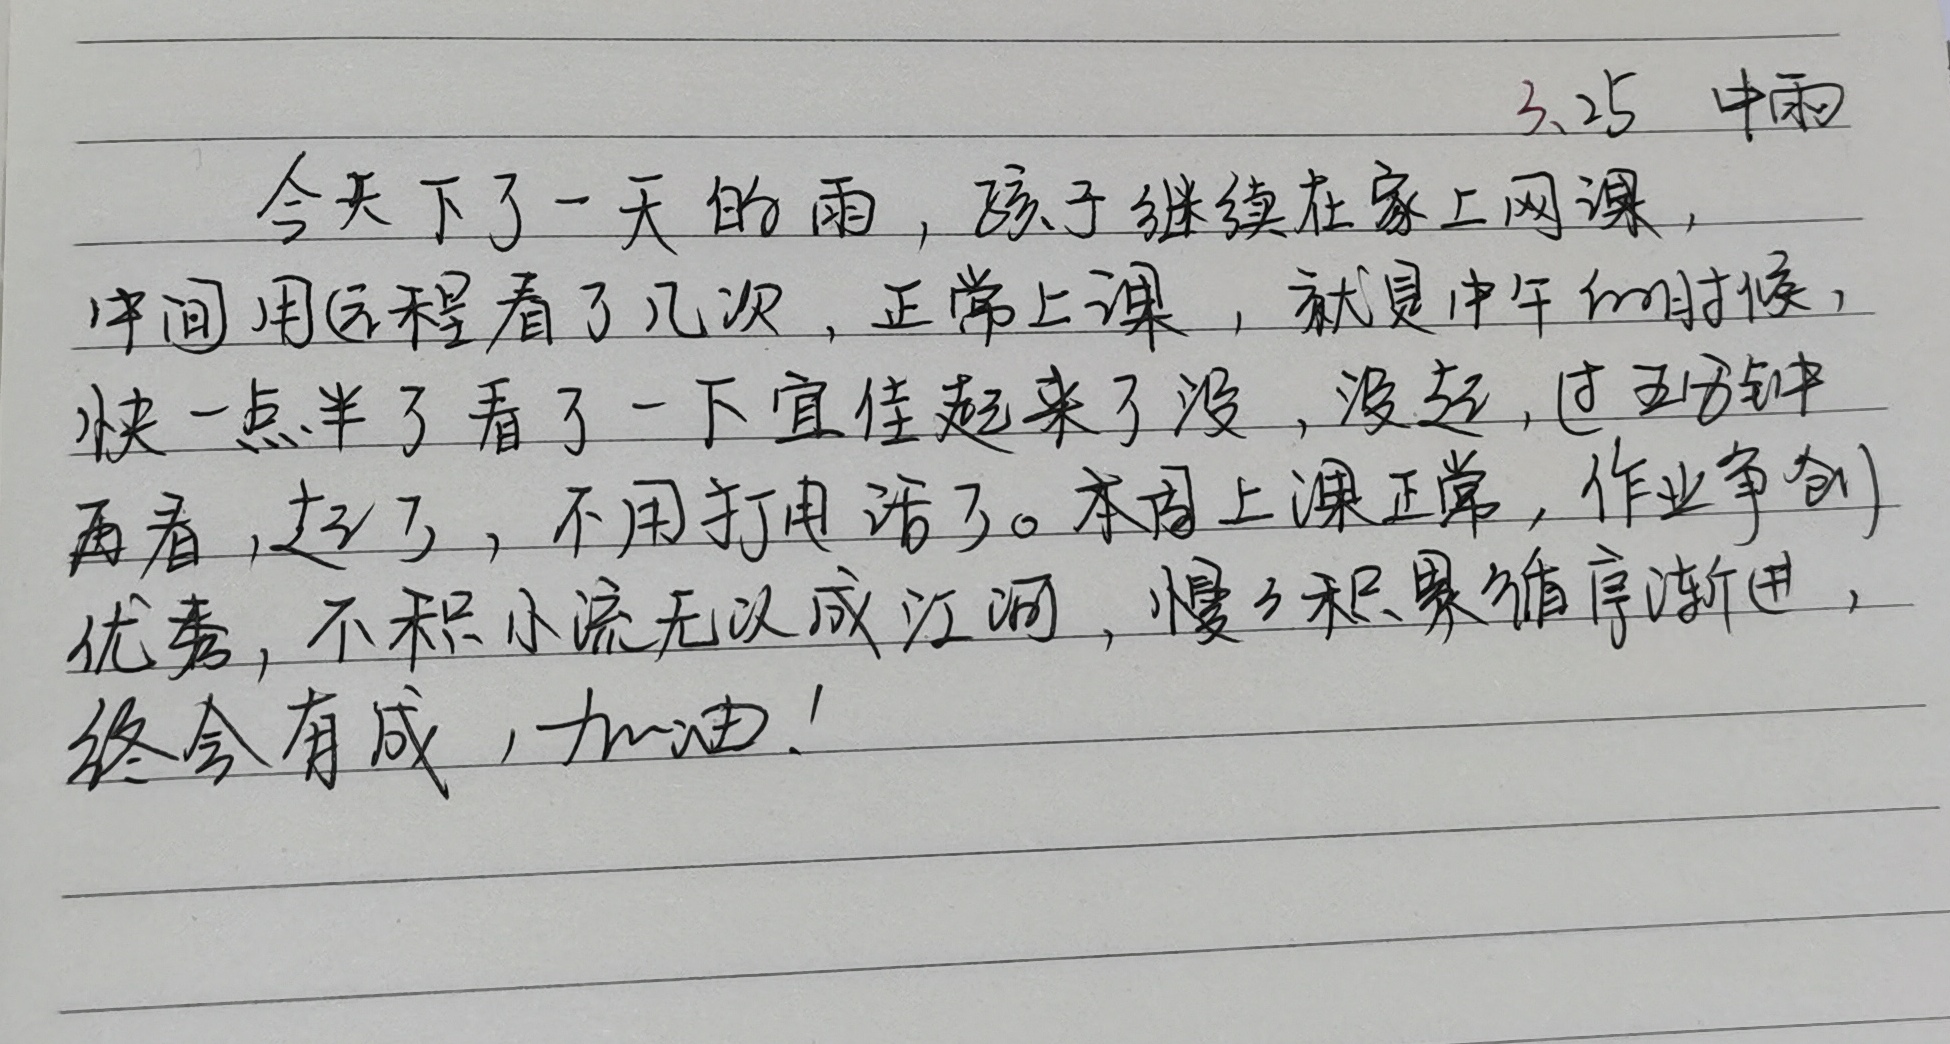 3.25 中雨
今天下了一天的雨，孩子继续在家上网课，
中间用远程看了几次，正常上课，就是中午的时候，
快一点半了看了一下宜佳起来了没，没起，过五分钟
再看，起了，不用打电话了。本周上课正常，作业争创
优秀，不积小流无以成江河，慢々积累循序渐进，
终会有成，加油！